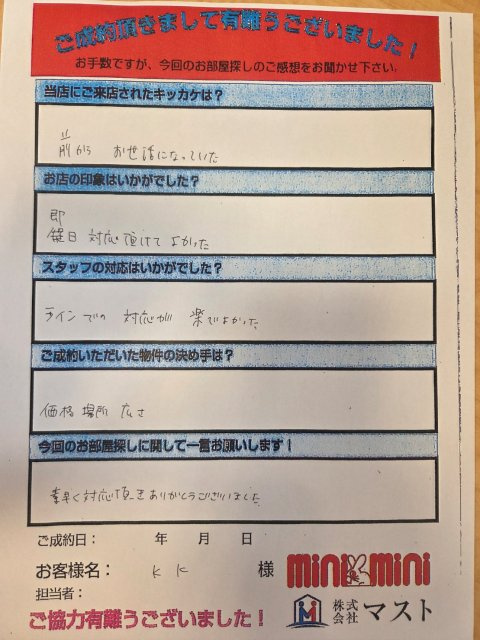 ご成約頂きまして有難うございました！
お手数ですが、今回のお部屋探しのご感想をお聞かせ下さい。
当店にご来店されたキッカケは？
前から お世話になっていた
お店の印象はいかがでした？
即
対応頂けて よかった
スタッフの対応はいかがでした？
ラインでの 対応が 楽でよかった。
ご成約いただいた物件の決め手は？
価格 場所 広さ
今回のお部屋探しに関して一言お願いします！
素早く対応頂きありがとうございました。
ご成約日： 年 月 日
お客様名： K K 様
担当者：
ご協力有難うございました！
mini mini
株式会社 マスト